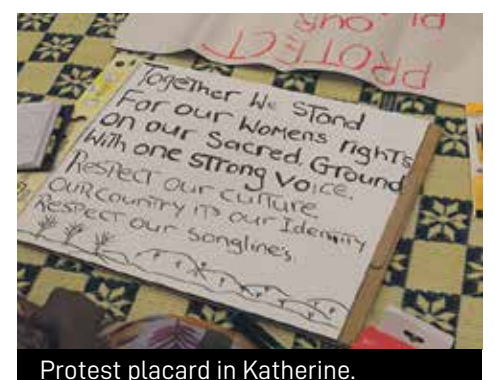 PROTECT
OUR
Together We Stand
For our Womens rights
on our Sacred Ground
With one strong voice.
Respect our culture
OUR Country its our Identity
Respect our Songline's
Protest placard in Katherine.